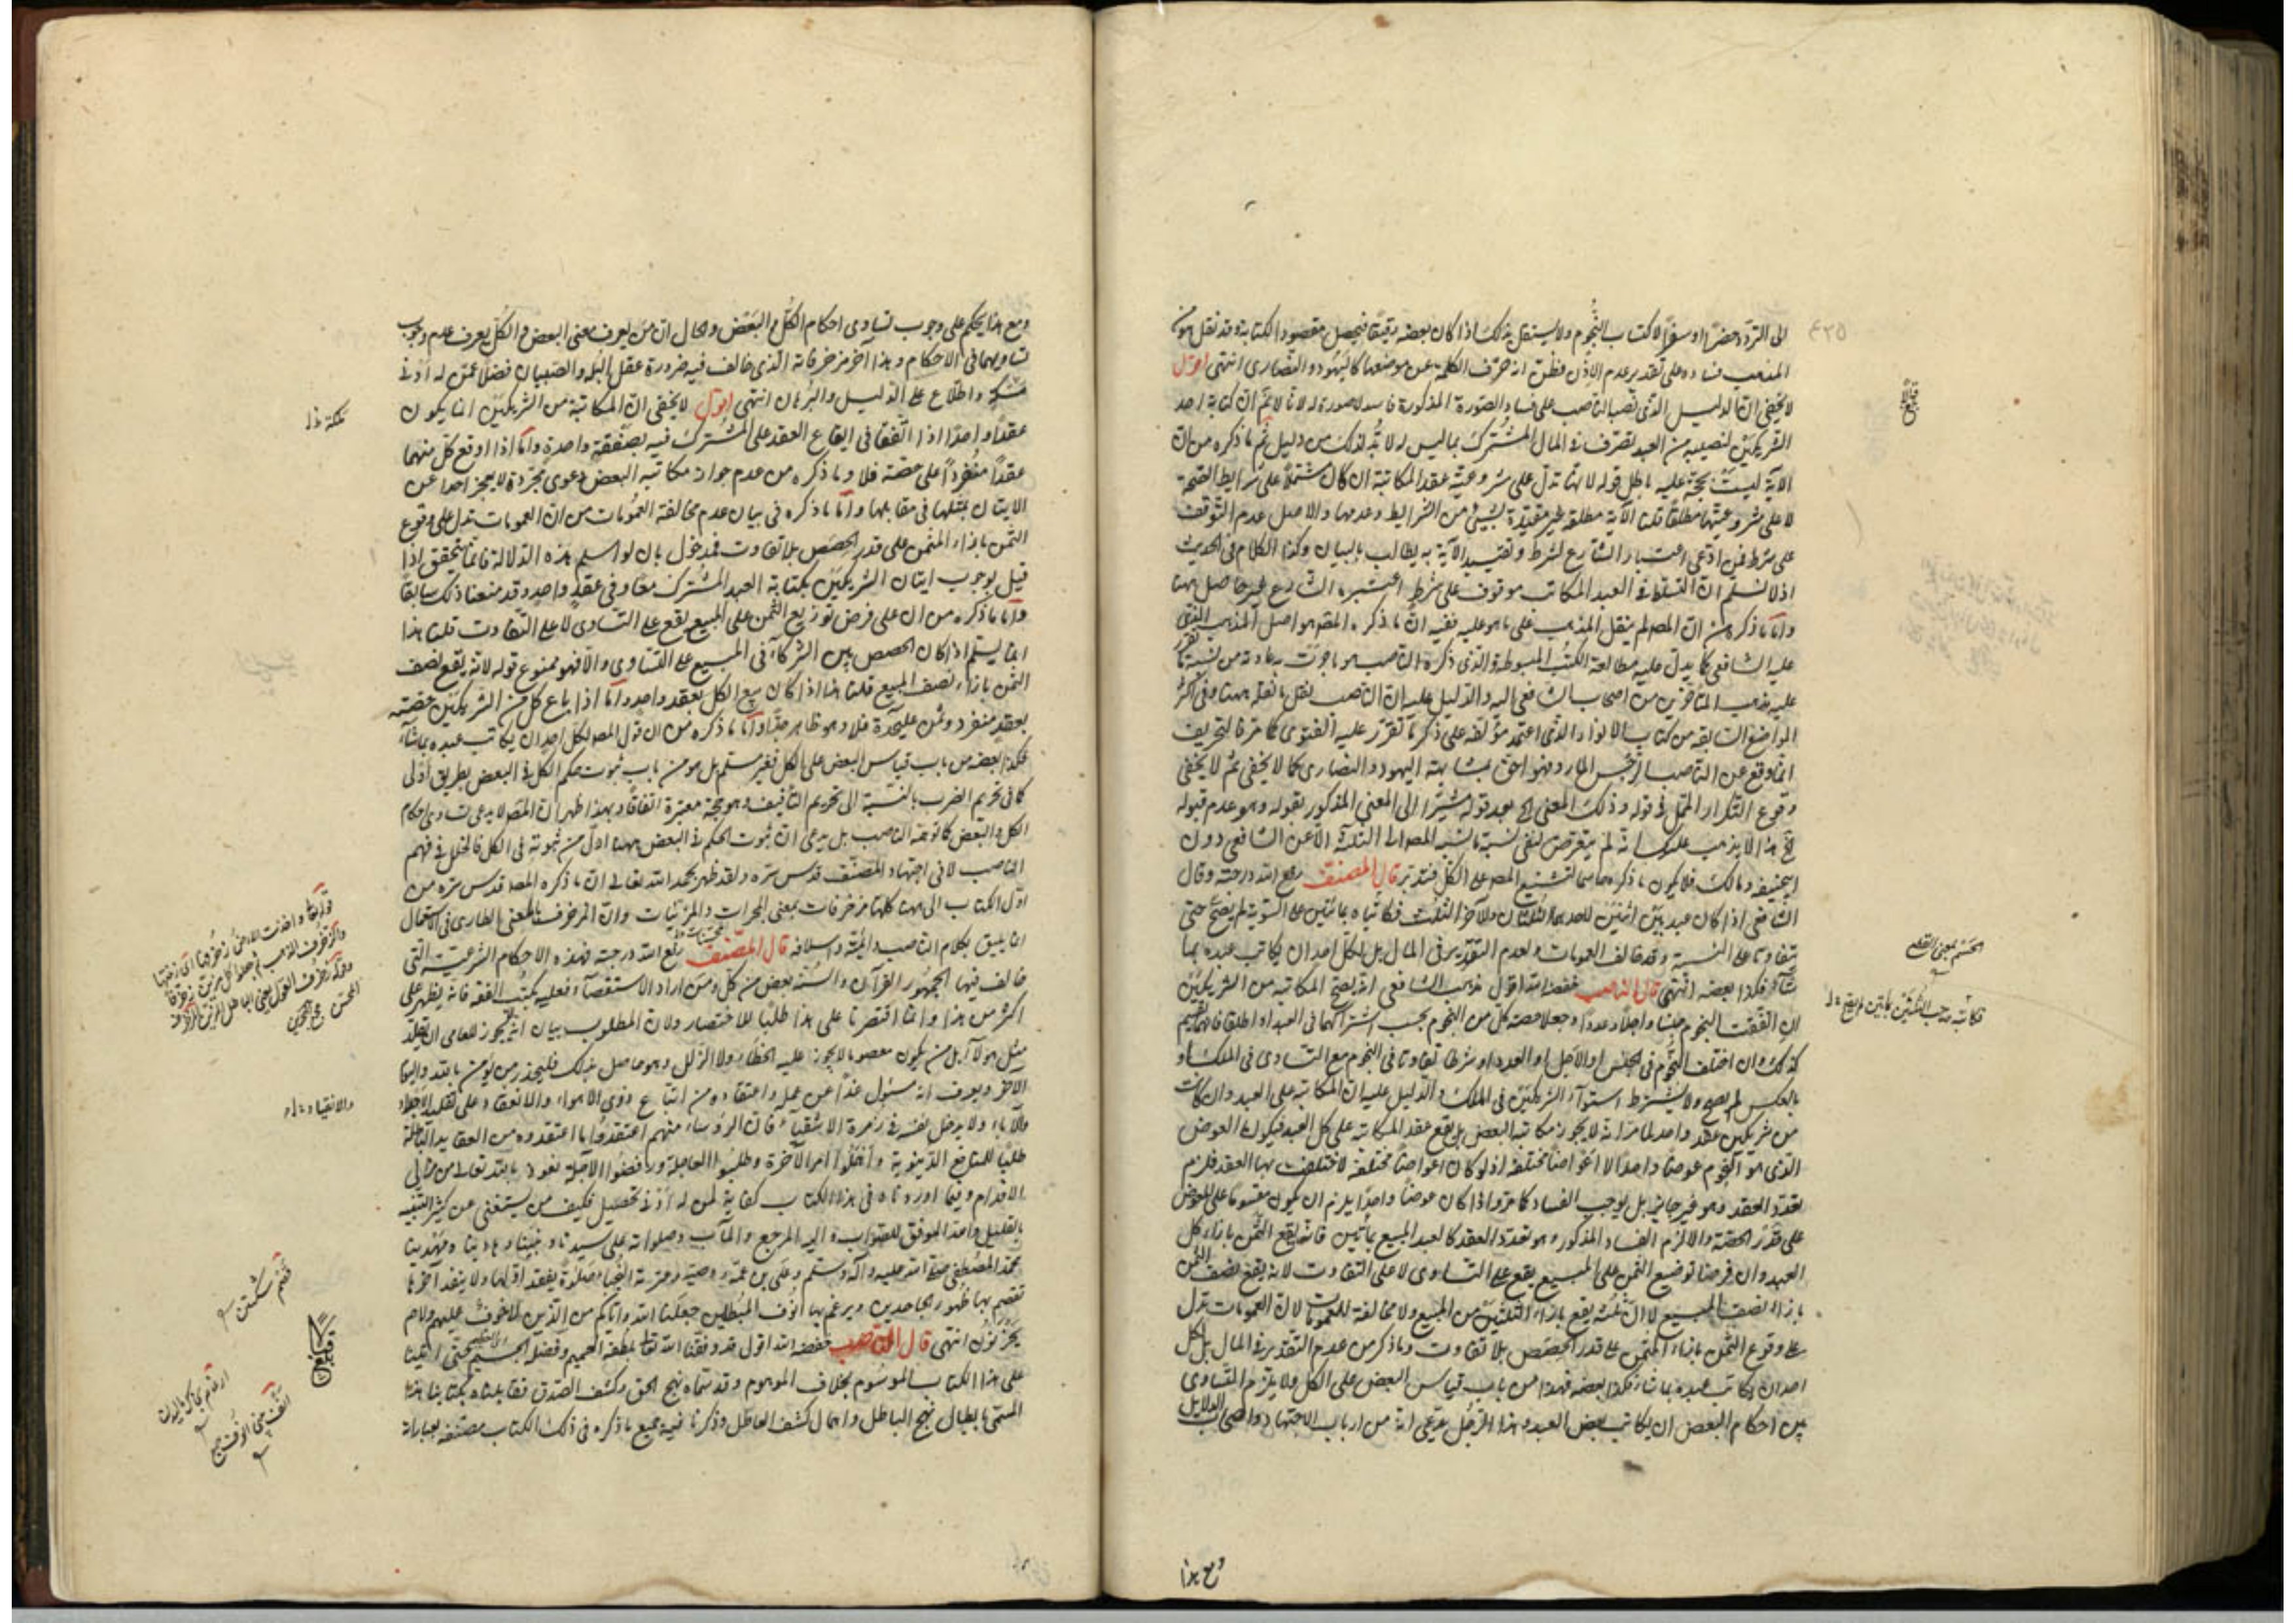 ٤٣٥
الى التردد حضرا او سفرا لاكتساب النجوم ولا يستقل بذلك اذا كان بعضه رقيقا فيحصل مقصود الكتابة وقد نقل هو من
المذهب فساده على تقدير عدم الاذن فظن انه حرف الكلمة عن موضعها كاليهود والنصارى انتهى اقول
لا يخفى ان الدليل الذى نصبه الناصب على فساد الصورة المذكورة فاسد لا صورة له لانا لا نم ان كتابة احد
الشريكين لنصيبه من العبد تصرف فى المال المشترك بما ليس له لا بد لذلك من دليل ثم ما ذكره من ان
الآية ليست بحجة عليه باطل قوله لانها تدل على مشروعية عقد المكاتبة ان كان مشتملا على شرايط الصحة
لا على مشروعيتها مطلقا قلنا الآية مطلقة غير مقيدة بشىء من الشرايط وعدمها والاصل عدم التوقف
على شرط فمن ادعى اعتبار الشارع لشرط وتقييد الآية به يطالب بالبيان وكذا الكلام فى الحديث
اذ لا نسلم ان التسلط فى العبد المكاتب موقوف على شرط اعتبره الشارع غير حاصل ههنا
واما ما ذكره من ان المصه لم ينقل المذهب على ما هو عليه ففيه ان ما ذكره المصه هو اصل المذهب الذى
عليه الشافعى كما يدل عليه مطالعة الكتب المبسوطة والذى ذكره الناصب هو ما جرت عادته من نسبة ما تقرر
عليه مذهب المتأخرين من اصحاب الشافعى اليه والدليل عليه ان الناصب نقل ما نقله ههنا وفى اكثر
المواضع السابقة من كتاب الانوار الذى اعتمد مؤلفه على ذكر ما تقرر عليه الفتوى كما مر فالتحريف
انما وقع عن الناصب الرجس المارد فهو احق بمشابهة اليهود والنصارى كما لا يخفى ثم لا يخفى
وقوع التكرار الممل فى قوله وذلك المعنى الخ بعد قوله مشيرا الى المعنى المذكور بقوله وهو عدم قبوله
الخ هذا لا يذهب عليك انه لم يتعرض لنفى نسبة ما نسبه المصه الى الثلثة الا عن الشافعى دون
ابيحنيفة ومالك فلا يكون ما ذكره حاسما لتشنيع المصه على الكل فتدبر قال المصنف رفع الله درجته وقال
الشافعى اذا كان عبد بين اثنين لاحدهما الثلثان وللآخر الثلث فكاتباه بمائتين على السوية لم يصح حتى
يتفاوتا على النسبة وقد خالف العمومات ولعدم التقدير فى المال بل لكل احد ان يكاتب عبده بما
شاء فكذا بعضه انتهى قال الناصب خفضه الله اقول مذهب الشافعى انه يصح المكاتبة من الشريكين
ان اتفقت النجوم جنسا واجلا وعددا وجعلا حصة كل من النجوم بحسب اشتراكهما فى العبد او اطلقا فانها تقسيم
كذلك وان اختلف النجوم فى الجنس او الاجل او العدد او شرطا تفاوتا فى النجوم مع التساوى فى الملك او
بالعكس لم يصح ولا يشترط استواء الشريكين فى الملك والدليل عليه ان المكاتبة على العبد وان كانت
من شريكين عقد واحد لما مر انه لا يجوز مكاتبة البعض بل يقع عقد المكاتبة على كل العبد فيكون العوض
الذى هو النجوم عوضا واحدا لا اعواضا مختلفة اذ لو كان اعواضا مختلفة لاختلف بها العقد فلزم
تعدد العقد وهو غير جائز بل يوجب الفساد كما مر واذا كان عوضا واحدا يلزم ان يكون مقسوما على المعوض
على قدر الحصة والا لزم الفساد المذكور وهو تعدد العقد كالعبد المبيع بمأتين فانه يقع الثمن بازاء كل
العبد وان فرضنا توضيع الثمن على المبيع يقع على التساوى لا على التفاوت لانه يقع نصف الثمن
بازاء نصف المبيع لا ان ثلثه يقع بازاء الثلثين من المبيع ولا مخالفة للعمومات لان العمومات تدل
على وقوع الثمن بازاء المثمن على قدر الحصص بلا تفاوت وما ذكر من عدم التقدير فى المال بل لكل
احد ان يكاتب عبده بما شاء فكذا بعضه فهذا من باب قياس البعض على الكل ولا يلزم التساوى
بين احكام البعض ان يكاتب بعض العبد وهذا الرجل يدعى انه من ارباب الاجتهاد واصحاب الدلايل
ومع هذا
الحسم بمعنى القطع
ومع هذا يحكم على وجوب تساوى احكام الكل والبعض والحال ان من يعرف معنى البعض والكل يعرف عدم وجوب
تساويهما فى الاحكام وهذا آخر مزخرفاته الذى خالف فيه ضرورة عقل البله والصبيان فضلا عمن له ادنى
مسكة واطلاع على الدليل والبرهان انتهى اقول لا يخفى ان المكاتبة من الشريكين انما يكون
عقدا واحدا اذا اتفقا فى ايقاع العقد على المشترك فيه بصفقة واحدة واما اذا اوقع كل منهما
عقدا منفردا على حصته فلا وما ذكره من عدم جواز مكاتبة البعض دعوى مجردة لا يعجز احد عن
الايتان بمثلها فى مقابلها واما ما ذكره فى بيان عدم مخالفة العمومات من ان العمومات تدل على وقوع
الثمن بازاء المثمن على قدر الحصص بلا تفاوت فمدخول بان لو اسلم هذه الدلالة فانما يتحقق اذا
قيل بوجوب ايتان الشريكين بكتابة العبد المشترك معا وفى عقد واحد وقد منعنا ذلك سابقا
واما ما ذكره من ان على فرض توزيع الثمن على المبيع يقع على التساوى لا على التفاوت قلنا هذا
انما يسلم اذا كان الحصص بين الشركاء فى المبيع على التساوى والا فهو ممنوع قوله لانه يقع نصف
الثمن بازاء نصف المبيع قلنا هذا اذا كان بيع الكل بعقد واحد واما اذا باع كل من الشريكين حصته
بعقد منفرد وثمن عليحدة فلا وهو ظاهر جدا واما ما ذكره من ان قول المصه لكل احد ان يكاتب عبده بما شاء
فكذا بعضه من باب قياس البعض على الكل فغير مسلم بل هو من باب ثبوت حكم الكل فى البعض بطريق اولى
كما فى تحريم الضرب بالنسبة الى تحريم التأفيف وهو حجة معتبرة اتفاقا وبهذا ظهر ان المصه لا يدعى تساوى احكام
الكل والبعض كما توهمه الناصب بل يدعى ان ثبوت الحكم فى البعض ههنا اولى من ثبوته فى الكل فالخلل فى فهم
الناصب لا فى اجتهاد المصنف قدس سره ولقد ظهر بحمد الله تعالى ان ما ذكره المصه قدس سره من
اول الكتاب الى ههنا كلها مزخرفات بمعنى المحبرات والمزينات وان المزخرف بالمعنى الطارى فى الاستعمال
انما يليق بكلام الناصب وائمته واسلافه قال المصنف رفع الله درجته فهذه الاحكام الشرعية التى
خالف فيها الجمهور القرآن والسنة بعض من كل ومن اراد الاستقصاء فعليه بكتب الفقه فانه يظهر على
اكثر من هذا وانما اقتصرنا على هذا طلبا للاختصار ولان المطلوب بيان انه لم يجوز للعامى ان يقلد
مثل هولاء بل من يكون معصوما لا يجوز عليه الخطاء ولا الزلل وهو حاصل بذلك فليحذر من يؤمن بالله واليوم
الآخر ويعرف انه مسئول غدا عن عمله واعتقاده من اتباع ذوى الاهواء والانعقاد على تقليد الاجلاء
والآباء ولا يدخل نفسه فى زمرة الاشقياء فان الرؤساء منهم اعتقدوا ما اعتقدوه من العقايد الباطلة
طلبا للمنافع الدنيوية واهملوا امر الآخرة وطلبوا العاجلة ورفضوا الآجلة نعوذ بالله تعالى من مزالق
الاقدام وفيما اوردناه فى هذا الكتاب كفاية لمن له ادنى تحصيل فكيف من يستغنى عن كثير التنبيه
بالقليل والله الموفق للصواب واليه المرجع والمآب وصلواته على سيدنا ونبينا وهادينا ومهدينا
محمد المصطفى صلى الله عليه وآله وسلم وعلى بن عمه ووصيه وعترته النجباء صلوة يفقد اولها ولا ينفد آخرها
تقصم بها ظهور الجاحدين ويرغم بها انوف المبطلين جعلنا الله واياكم من الذين لا خوف عليهم ولا هم
يحزنون انتهى قال الناصب خفضه الله اقول قد وفقنا الله تعا بلطفه العميم وفضله الجسيم حتى اتينا
على هذا الكتاب الموسوم بخلاف الموهوم وقد سماه نهج الحق وكشف الصدق فقابلناه بكتابنا هذا
المسمى بابطال نهج الباطل واهمال كشف العاطل وذكرنا فيه جميع ما ذكره فى ذلك الكتاب مصنفه بعباراته
والانقياد
قصم شكستن